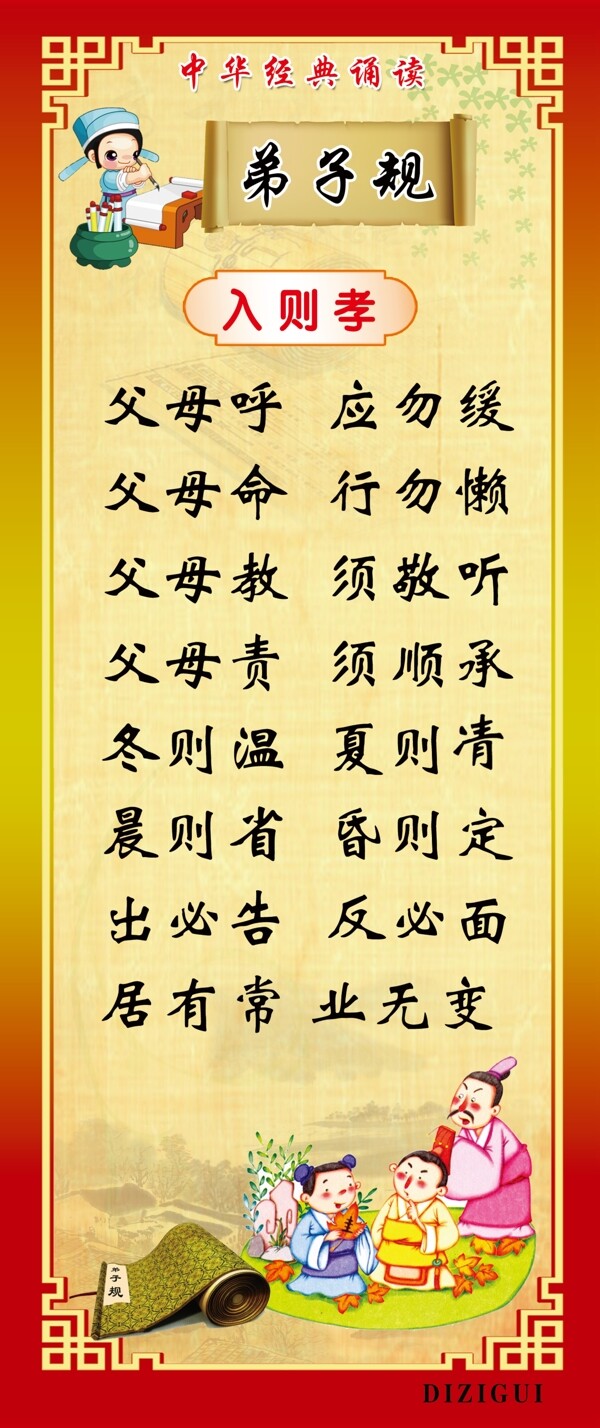 中华经典诵读
弟子规
入则孝
父母呼 应勿缓
父母命 行勿懒
父母教 须敬听
父母责 须顺承
冬则温 夏则凊
晨则省 昏则定
出必告 反必面
居有常 业无变
弟子规
DIZIGUI